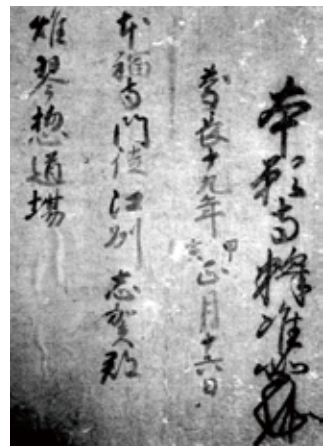 本願寺釋准如
慶長十九年甲寅正月十六日
本福寺門徒江州志賀郡
雄琴惣道場